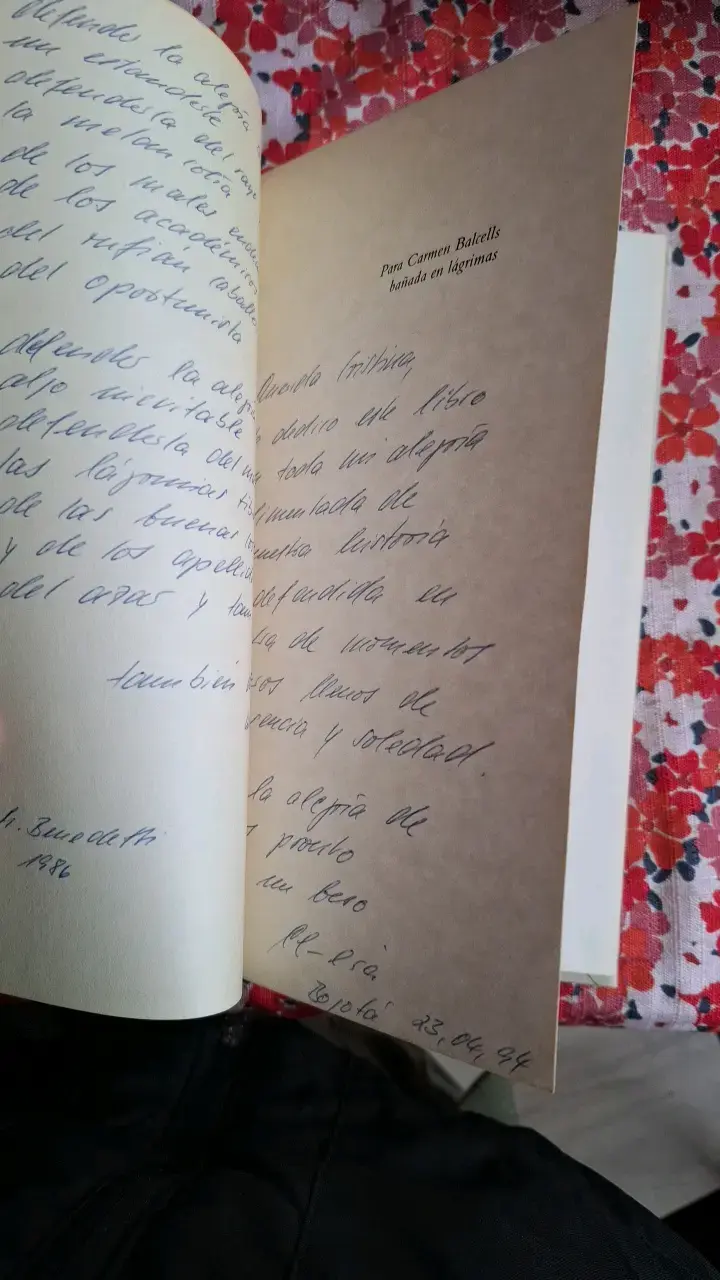 defender la alegría
un estandarte
defenderla del rayo
la melancolía
de los males endém
de los académicos
del rufián caballe
del oportunista
defender la alegrí
algo inevitable
defenderla del
las lágrimas tib
de las buenas
y de los apellid
del azar y tam
también
M. Benedetti
1986
Para Carmen Balcells
bañada en lágrimas
Querida Cristina,
dedico este libro
toda mi alegría
limentada de
nuestra historia
defendida en
de momentos
llenos de
y soledad.
la alegría de
pronto
un beso
Bogotá 23,04,94